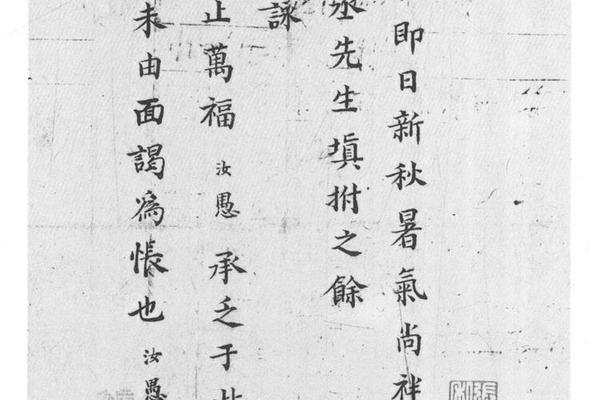 即日新秋暑氣尚袢
丞先生填拊之餘
詠
止萬福汝愚承乏于此
未由面謁爲悵也汝愚